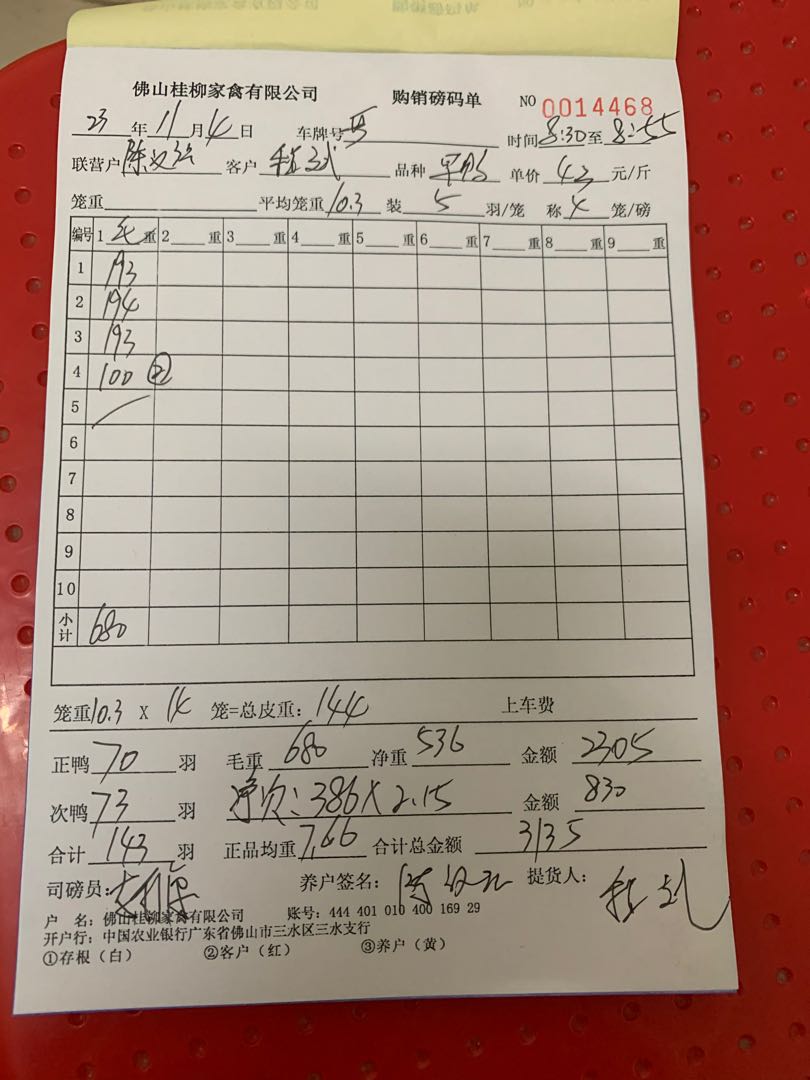 佛山桂柳家禽有限公司 购销磅码单 NO 0014468
23 年 11 月 4 日 车牌号 时间 8:30 至 8:55
联营户 陈 客户 程 品种 单价 43 元/斤
笼重 平均笼重 10.3 装 5 羽/笼 称 4 笼/磅
编号 1 毛 重 2 重 3 重 4 重 5 重 6 重 7 重 8 重 9 重
1 193
2 194
3 193
4 100 ②
5
6
7
8
9
10
小计 680
笼重 10.3 X 14 笼=总皮重: 144 上车费
正鸭 70 羽 毛重 680 净重 536 金额 2305
次鸭 73 羽 净次: 386 X 2.15 金额 830
合计 143 羽 正品均重 7.66 合计总金额 3135
司磅员: 养户签名: 提货人:
户 名: 佛山桂柳家禽有限公司 账号: 444 401 010 400 169 29
开户行: 中国农业银行广东省佛山市三水区三水支行
①存根(白) ②客户(红) ③养户(黄)